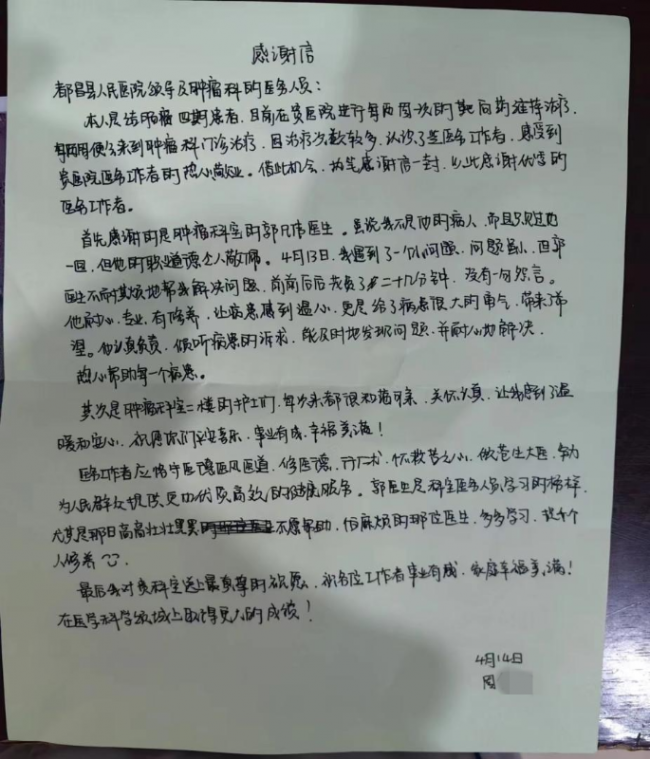 感谢信
都昌县人民医院领导及肿瘤科的医务人员：
本人是结肠癌四期患者，目前在贵医院进行每两周一次的靶向药维持治疗，
每两周便会来到肿瘤科门诊治疗，因治疗次数较多，认识了些医务工作者，感受到
贵医院医务工作者的热心敬业。借此机会，持笔感谢信一封，以此感谢优秀的
医务工作者。
首先感谢的是肿瘤科室的郭凡伟医生。虽说我不是他的病人，而且只见过他
一回，但他的职业道德令人敬佩。4月13日，我遇到了一个小问题，问题虽小，但郭
医生不耐其烦地帮我解决问题，前前后后共费了二十几分钟，没有一句怨言。
他耐心、专业、有修养，让病患感到温心，更是给了病患很大的勇气，带来了希
望。他认真负责，倾听病患的诉求，能及时地发现问题，并耐心地解决，
热心帮助每一个病患。
其次是肿瘤科室二楼的护士们，每次来都很和蔼可亲，关怀认真，让我感到了温
暖和安心，祝愿你们平安喜乐，事业有成，幸福美满！
医务工作者应恪守医德医风医道，修医德，行仁术，怀救苦之心，做苍生大医，努力
为人民群众提供更加优质高效的健康服务。郭医生是科室医务人员学习的榜样，
尤其是那日高高壮壮黑黑不愿帮助，怕麻烦的那位医生，多多学习，提升个
人修养
最后我对贵科室送上最真挚的祝愿，祝各位工作者事业有成，家庭幸福美满！
在医学科学领域上取得更大的成绩！
4月14日
周